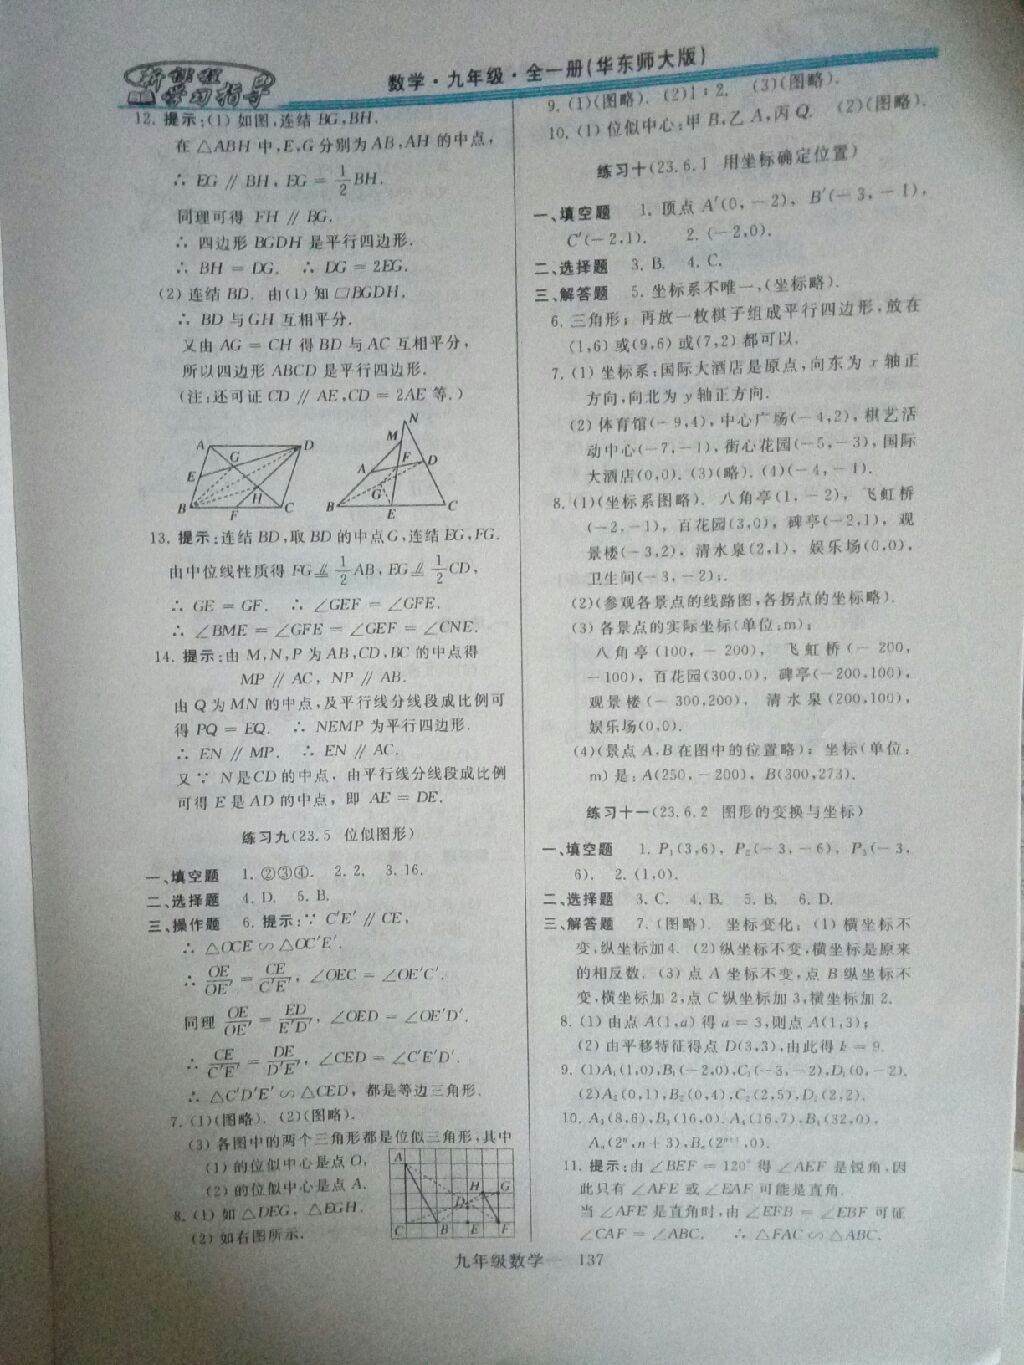 新课程
学习指导
数学·九年级·全一册(华东师大版)
12. 提示:(1) 如图,连结 BG,BH.
在 △ABH 中,E,G 分别为 AB,AH 的中点,
∴ EG ∥ BH,EG = 1/2 BH.
同理可得 FH ∥ BG.
∴ 四边形 BGDH 是平行四边形.
∴ BH = DG. ∴ DG = 2EG.
(2) 连结 BD. 由(1) 知 □BGDH,
∴ BD 与 GH 互相平分.
又由 AG = CH 得 BD 与 AC 互相平分,
所以四边形 ABCD 是平行四边形.
(注:还可证 CD ∥ AE,CD = 2AE 等.)
A D G E H B F C
N M A F D G B E C
13. 提示:连结 BD,取 BD 的中点 G,连结 EG,FG.
由中位线性质得 FG ⫽ 1/2 AB,EG ⫽ 1/2 CD,
∴ GE = GF. ∴ ∠GEF = ∠GFE.
∴ ∠BME = ∠GFE = ∠GEF = ∠CNE.
14. 提示:由 M,N,P 为 AB,CD,BC 的中点得
MP ∥ AC, NP ∥ AB.
由 Q 为 MN 的中点,及平行线分线段成比例可
得 PQ = EQ. ∴ NEMP 为平行四边形.
∴ EN ∥ MP. ∴ EN ∥ AC.
又 ∵ N 是 CD 的中点, 由平行线分线段成比例
可得 E 是 AD 的中点, 即 AE = DE.
练习九(23.5 位似图形)
一、填空题 1. ②③④. 2. 2. 3. 16.
二、选择题 4. D. 5. B.
三、操作题 6. 提示:∵ C′E′ ∥ CE,
∴ △OCE ∽ △OC′E′.
∴ OE/OE′ = CE/C′E′, ∠OEC = ∠OE′C′.
同理 OE/OE′ = ED/E′D′, ∠OED = ∠OE′D′.
∴ CE/C′E′ = DE/D′E′, ∠CED = ∠C′E′D′.
∴ △C′D′E′ ∽ △CED, 都是等边三角形.
7. (1)(图略). (2)(图略).
(3) 各图中的两个三角形都是位似三角形,其中
(1) 的位似中心是点 O,
(2) 的位似中心是点 A.
8. (1) 如 △DEG, △EGH.
(2) 如右图所示.
A H G D C B E F
9. (1)(图略). (2)1∶2. (3)(图略).
10. (1) 位似中心:甲 B,乙 A,丙 Q. (2)(图略).
练习十(23.6.1 用坐标确定位置)
一、填空题 1. 顶点 A′(0, - 2), B′(- 3, - 1),
C′(- 2,1). 2. (- 2,0).
二、选择题 3. B. 4. C.
三、解答题 5. 坐标系不唯一,(坐标略).
6. 三角形; 再放一枚棋子组成平行四边形, 放在
(1,6) 或(9,6) 或(7,2) 都可以.
7. (1) 坐标系:国际大酒店是原点,向东为 x 轴正
方向,向北为 y 轴正方向.
(2) 体育馆(- 9,4),中心广场(- 4,2),棋艺活
动中心(-7,-1),街心花园(-5,-3),国际
大酒店(0,0). (3)(略). (4)(- 4, - 1).
8. (1)(坐标系图略). 八角亭(1, - 2), 飞虹桥
(-2,-1), 百花园(3,0), 碑亭(-2,1), 观
景楼(-3,2), 清水泉(2,1), 娱乐场(0,0),
卫生间(- 3, - 2);.
(2)(参观各景点的线路图,各拐点的坐标略).
(3) 各景点的实际坐标(单位:m):
八角亭 (100, - 200), 飞虹桥 (- 200,
- 100), 百花园(300,0), 碑亭(-200,100),
观景楼 (- 300,200), 清水泉 (200,100),
娱乐场(0,0).
(4)(景点 A,B 在图中的位置略); 坐标(单位:
m) 是:A(250, - 200), B(300,273).
练习十一(23.6.2 图形的变换与坐标)
一、填空题 1. P₁(3,6), P₂(- 3, - 6), P₃(- 3,
6). 2. (1,0).
二、选择题 3. C. 4. B. 5. B. 6. D.
三、解答题 7. (图略). 坐标变化: (1) 横坐标不
变,纵坐标加 4. (2) 纵坐标不变,横坐标是原来
的相反数. (3) 点 A 坐标不变,点 B 纵坐标不
变,横坐标加 2,点 C 纵坐标加 3,横坐标加 2.
8. (1) 由点 A(1,a) 得 a = 3,则点 A(1,3);
(2) 由平移特征得点 D(3,3),由此得 k = 9.
9. (1)A₁(1,0),B₁(- 2,0),C₁(-3, - 2),D₁(0, - 2).
(2)A₂(0,1),B₂(0,4),C₂(2,5),D₂(2,2).
10. A₃(8,6),B₃(16,0). A₄(16,7),B₄(32,0),
Aₙ(2ⁿ,n + 3),Bₙ(2ⁿ⁺¹,0).
11. 提示:由 ∠BEF = 120° 得 ∠AEF 是锐角,因
此只有 ∠AFE 或 ∠EAF 可能是直角.
当 ∠AFE 是直角时,由 ∠EFB = ∠EBF 可证
∠CAF = ∠ABC. ∴ △FAC ∽ △ABC.
九年级数学— 137